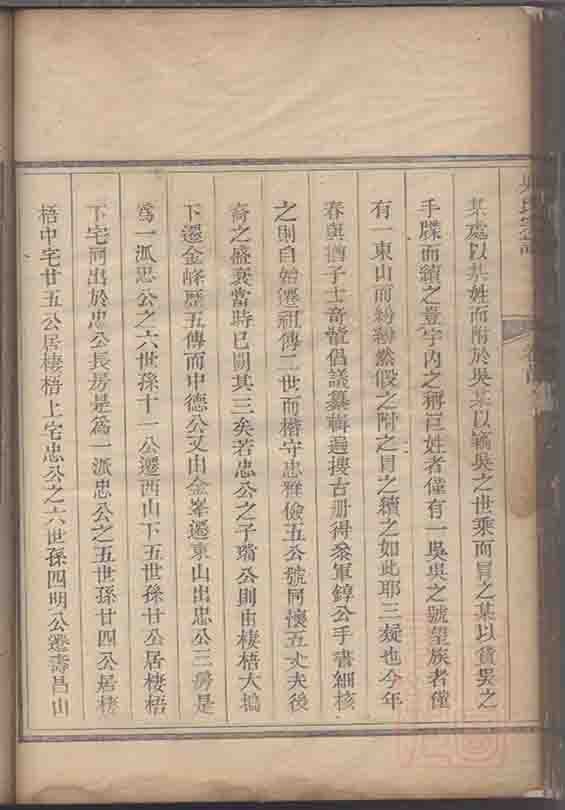 吳氏宗譜
卷首
某處以某姓而附於吳某以竊吳之世乘而冒之某以貨吳之
手牒而續之豈宇內之稱巨姓者僅有一吳吳之號望族者僅
有一東山而紛紛然假之附之冒之續之如此耶三疑也今年
春與猶子士奇輩倡議纂輯遍搜古册得叅軍錞公手書細核
之則自始遷祖傳二世而楷守忠雅儉五公號同懷五丈夫後
裔之盛衰當時已闕其三矣若忠公之子瑞公則由棲梧大塢
下遷金峰歷五傳而中德公又由金峯遷東山出忠公三房是
爲一派忠公之六世孫十一公遷西山下五世孫廿公居棲梧
下宅同出於忠公長房是爲一派忠公之五世孫廿四公居棲
梧中宅廿五公居棲梧上宅忠公之六世孫四明公遷壽昌山